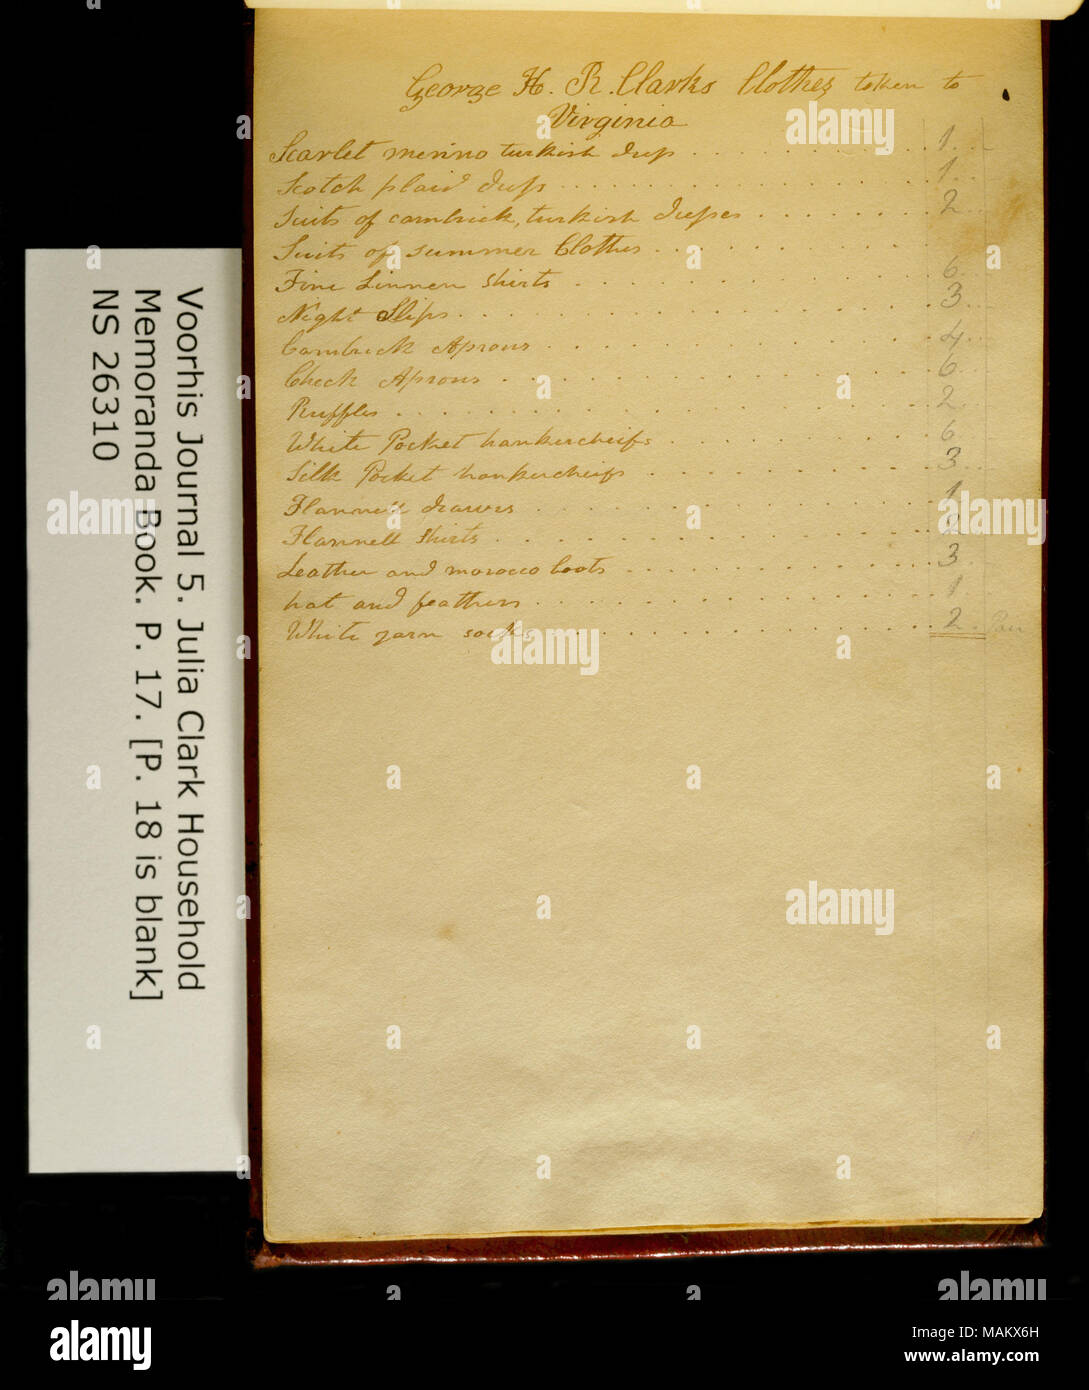 George H. R. Clarks Clothes taken to
Virginia
Scarlet merino turkish dress 1
Scotch plaid dress 1
Suits of cambrick, turkish dresses 2
Suits of summer Clothes
Fine Linnen shirts 6
Night Slips 3
Cambrick Aprons 4
Check Aprons 6
Ruffles 2
White Pocket hankercheifs 6
Silk Pocket hankercheifs 3
Flannell drawers 1
Flannell shirts
Leather and morocco boots 3
hat and feathers 1
White yarn socks 2 Pair
Voorhis Journal 5. Julia Clark Household
Memoranda Book. P. 17. [P. 18 is blank]
NS 26310
alamy
alamy
Image ID: MAKX6H
www.alamy.com